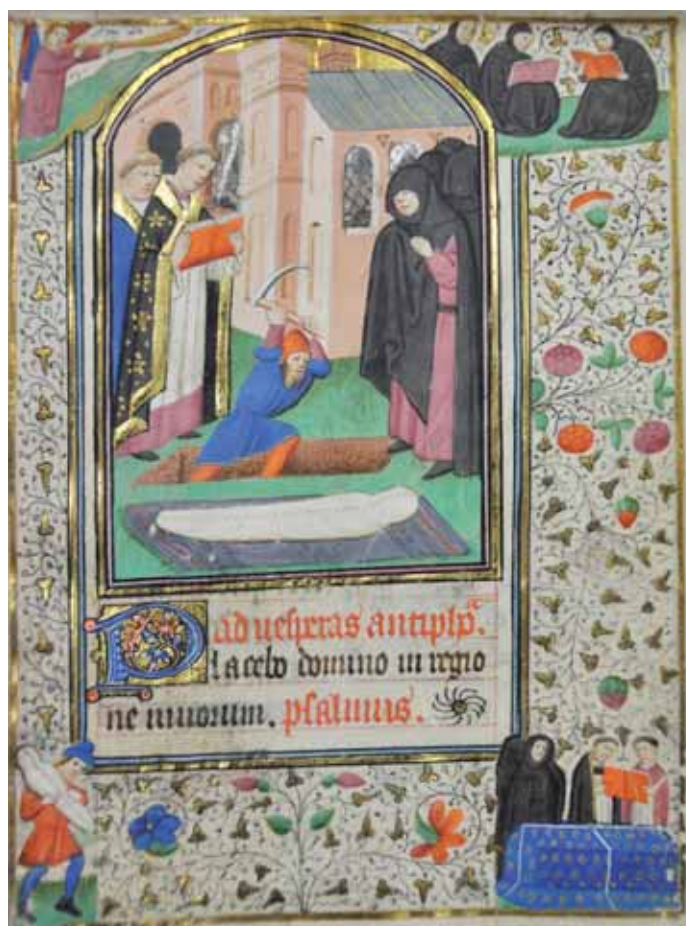 ad uesperas antipho.
Placebo domino in regio
ne uiuorum. psalmus.